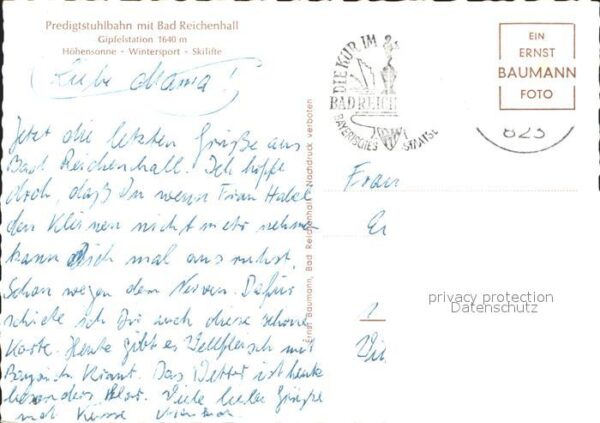 Predigtstuhlbahn mit Bad Reichenhall
Gipfelstation 1640 m
Höhensonne - Wintersport - Skilifte
Liebe Mama!
Jetzt die letzten Grüße aus
Bad Reichenhall. Ich hoffe
doch, daß Du wenn Frau
den Kleinen nicht mehr nehmen
kann Dich mal ausruhst,
Schon wegen den Nerven. Dafür
schicke ich Dir auch diese schöne
Karte. Heute gibt es Tellerfleisch mit
Kraut. Das Wetter ist heute
besonders Viele liebe Grüße
und Küsse
Ernst Baumann, Bad Reichenhall - Nachdruck verboten
DIE KUR IM
BAD REICH
BAYERISCHES STAATSB
823
EIN
ERNST
BAUMANN
FOTO
Frau
privacy protection
Datenschutz